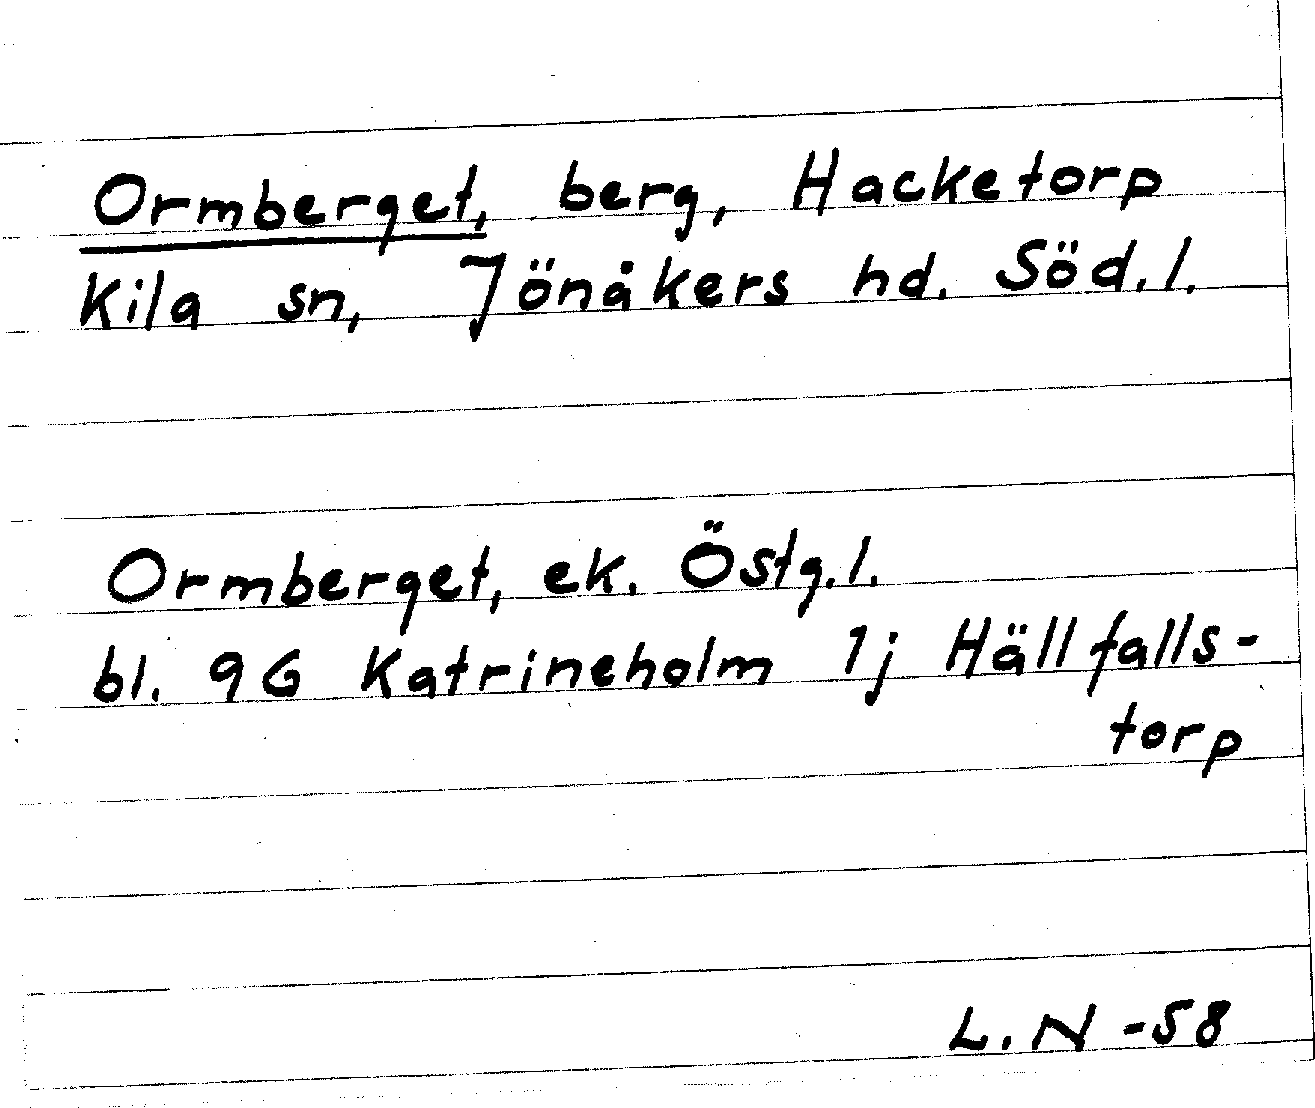 Ormberget, berg, Hacketorp
Kila sn, Jönåkers hd. Söd.l.
Ormberget, ek. Östg.l.
bl. 9G Katrineholm 1j Hällfalls-
torp
L.N -58